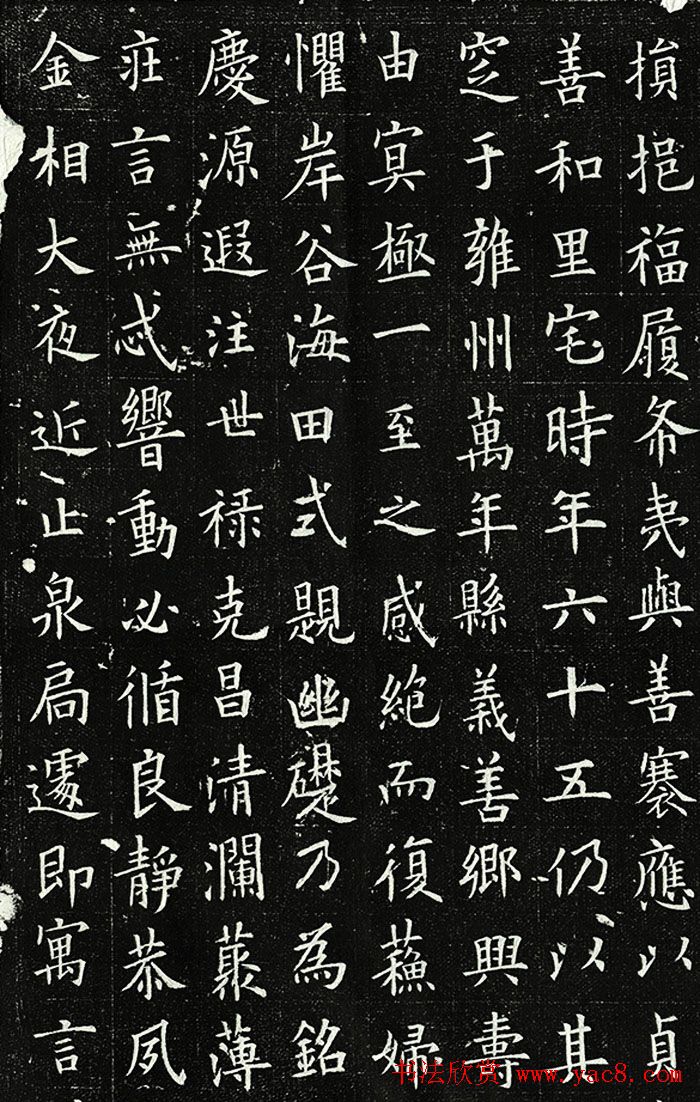 損挹福履希夷與善褰應以貞
善和里宅時年六十五仍以其
窆于雍州萬年縣義善鄉興壽
由冥極一至之感絶而復蘓婦
懼岸谷海田式題幽礎乃為銘
慶源遐注世禄克昌清瀾蕞薄
莊言無忒響動必循良靜恭夙
金相大夜近止泉扃遽即寓言
书法欣赏 www.yac8.com